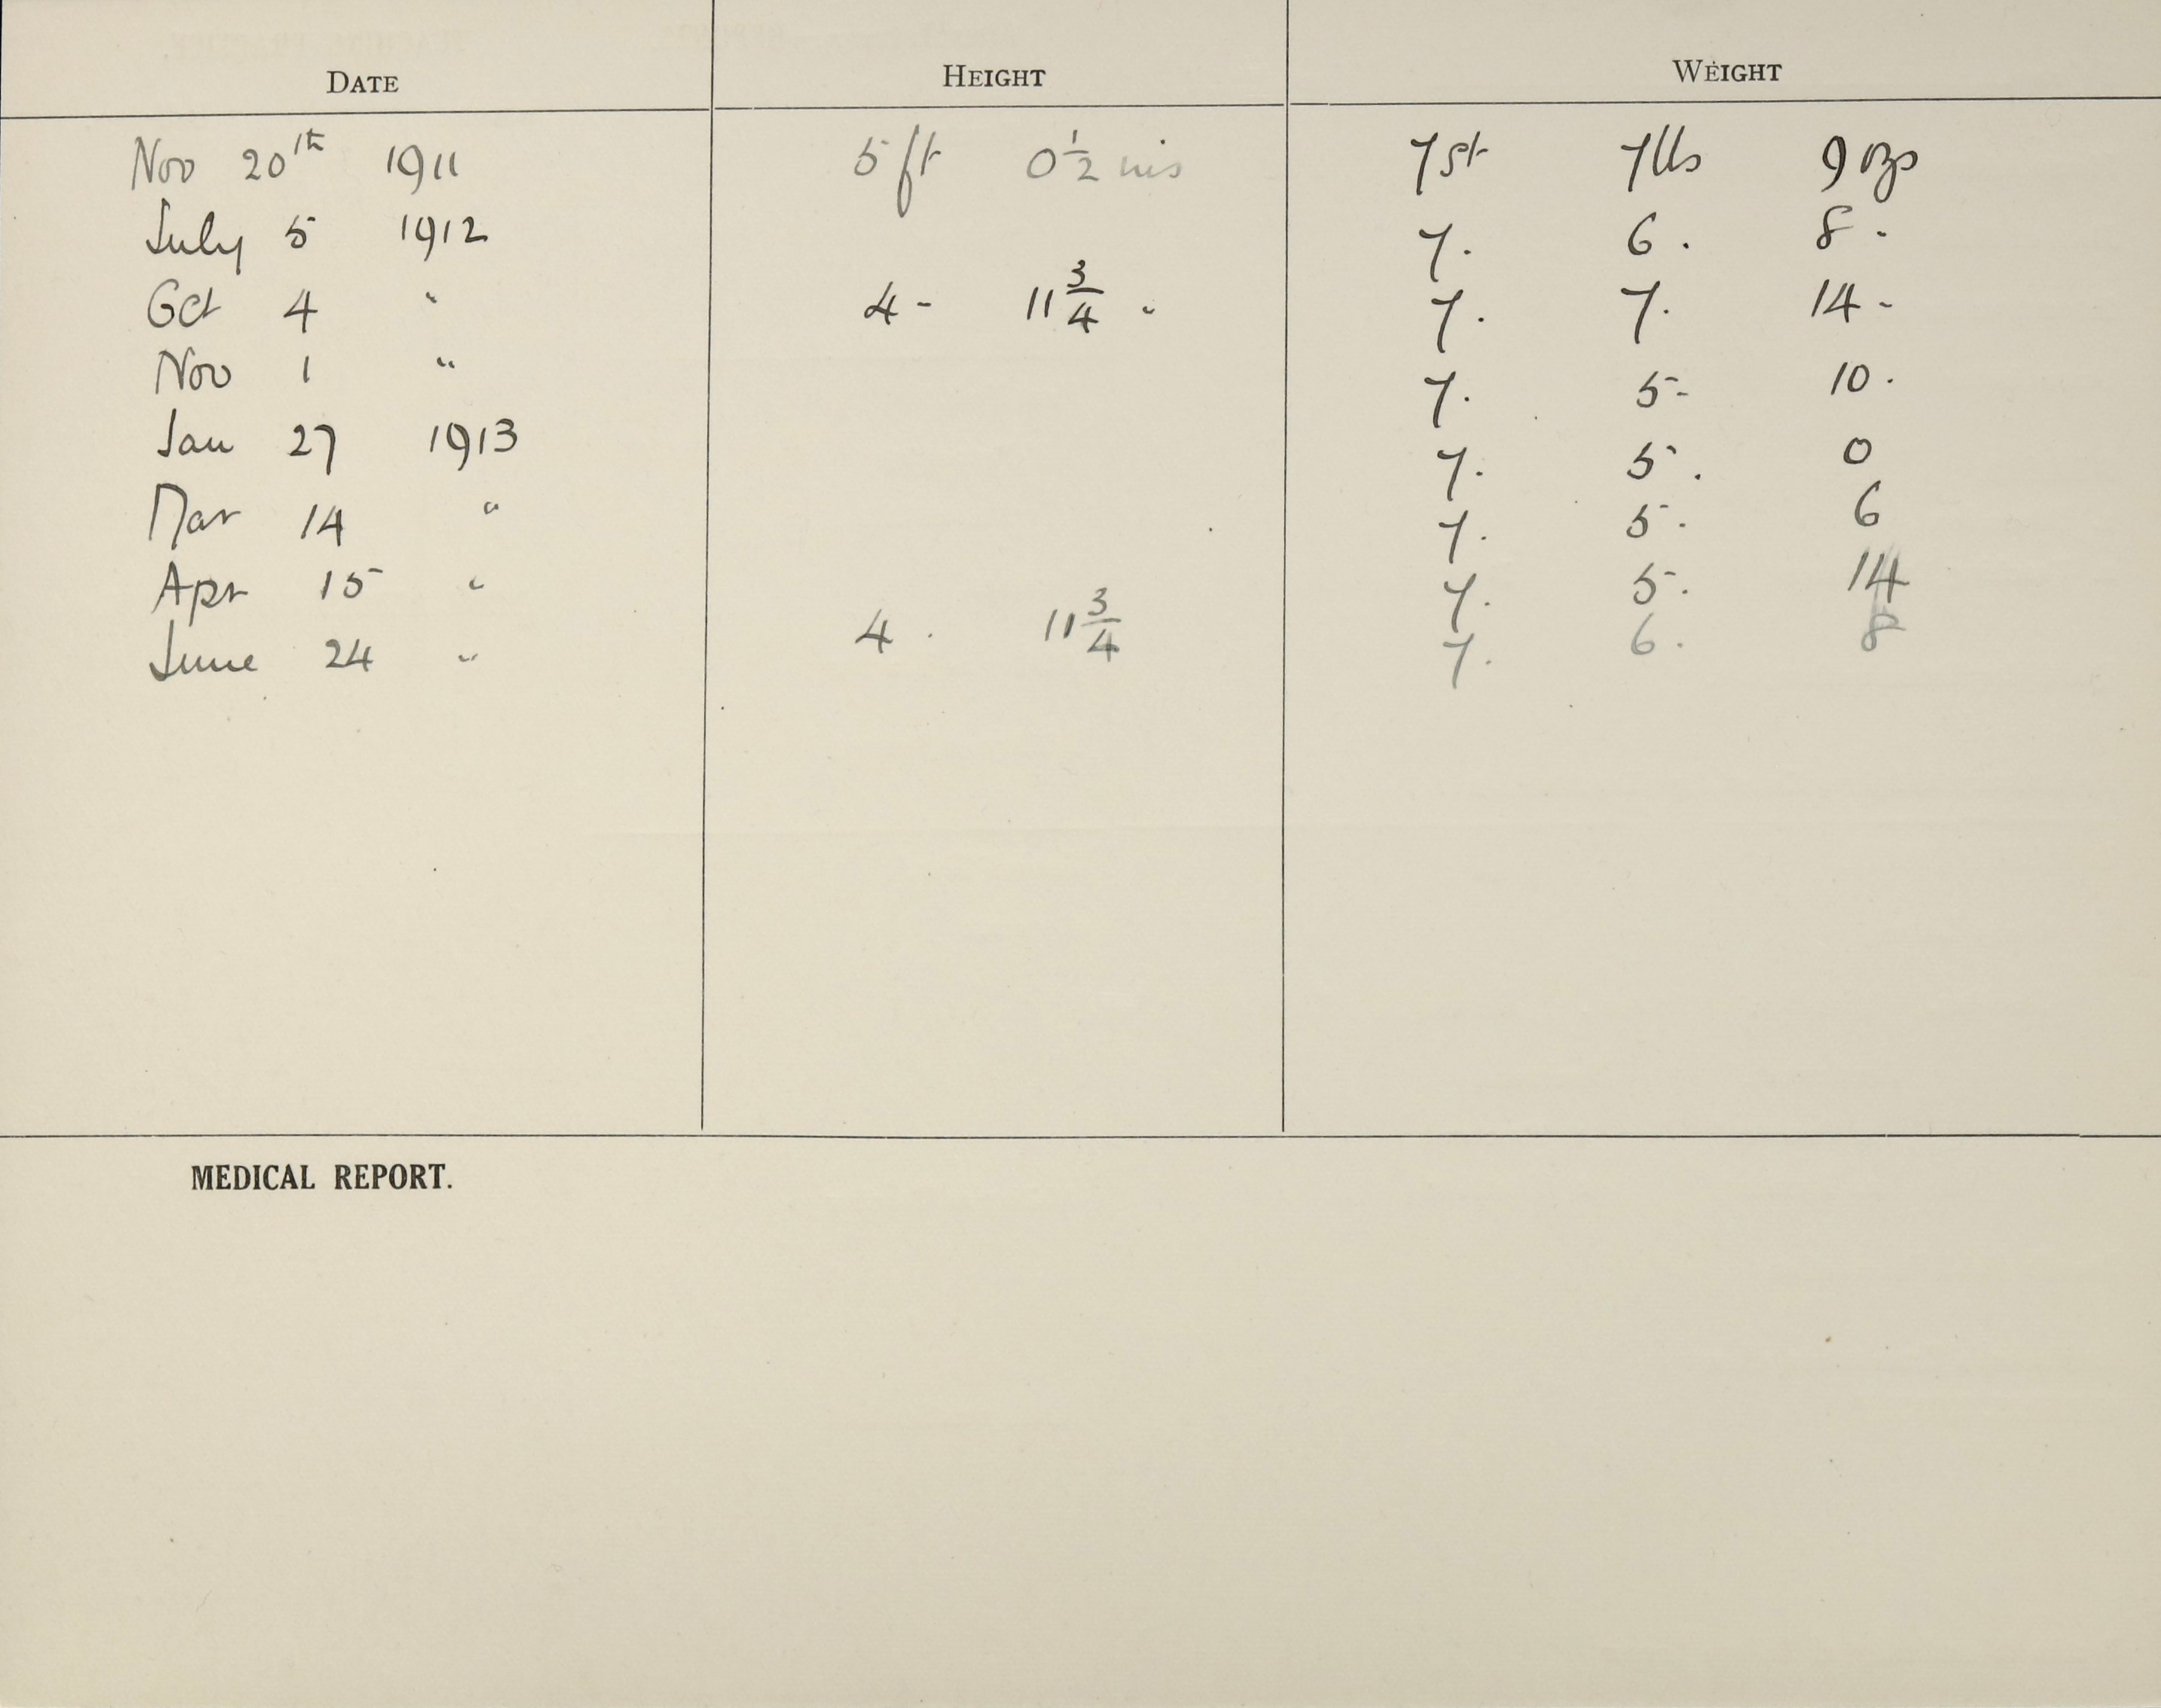 DATE HEIGHT WEIGHT
Nov 20th 1911 5 ft 0½ ins 7st 7lbs 9 ozs
July 5 1912 7. 6. 8.
Oct 4 " 4 - 11¾ " 7. 7. 14 -
Nov 1 " 7. 5 - 10.
Jan 27 1913 7. 5. 0
Mar 14 " 7. 5. 6
Apr 15 " 7. 5. 14
June 24 " 4. 11¾ 7. 6. 8
MEDICAL REPORT.